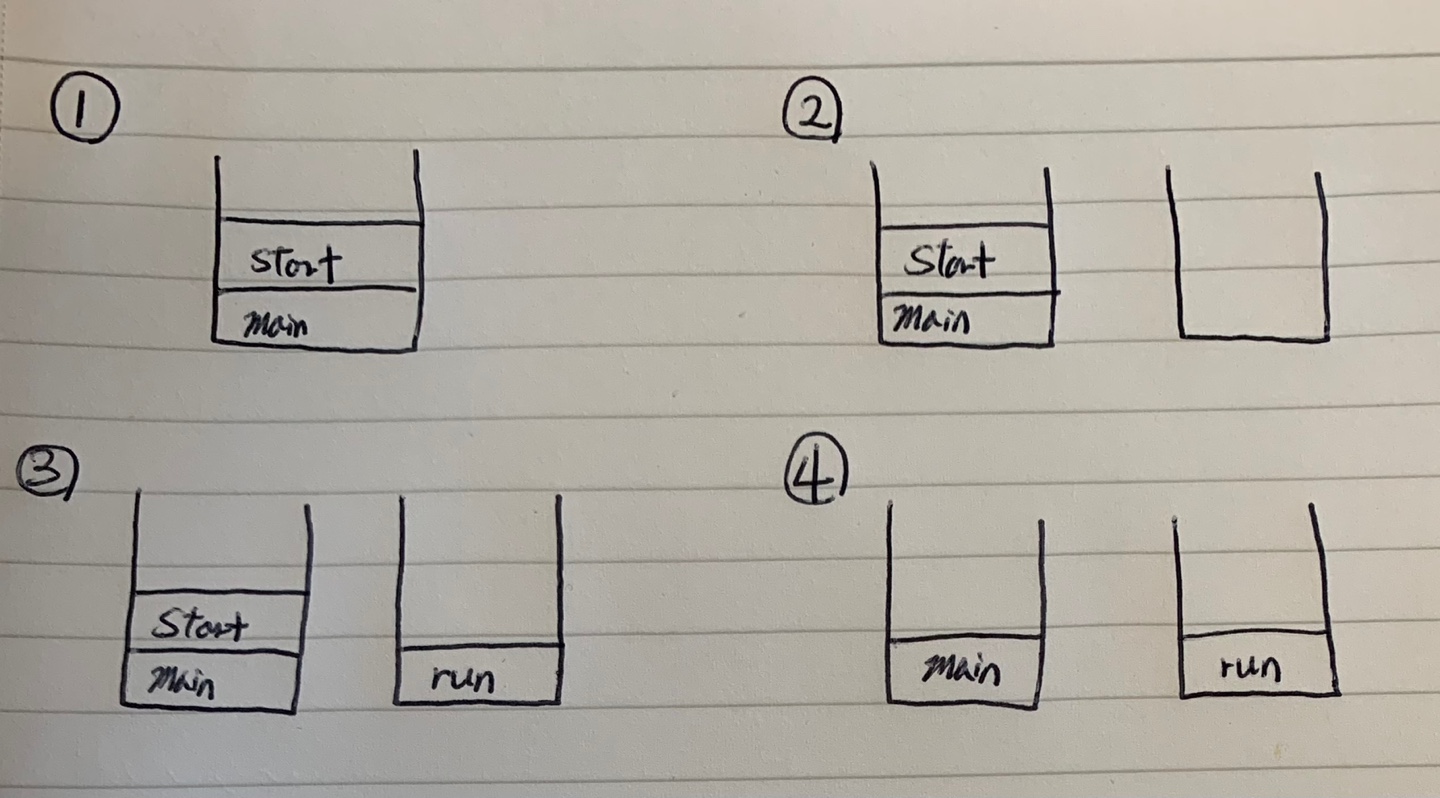 ①
start
main
②
Start
main
③
Start
main
run
④
main
run